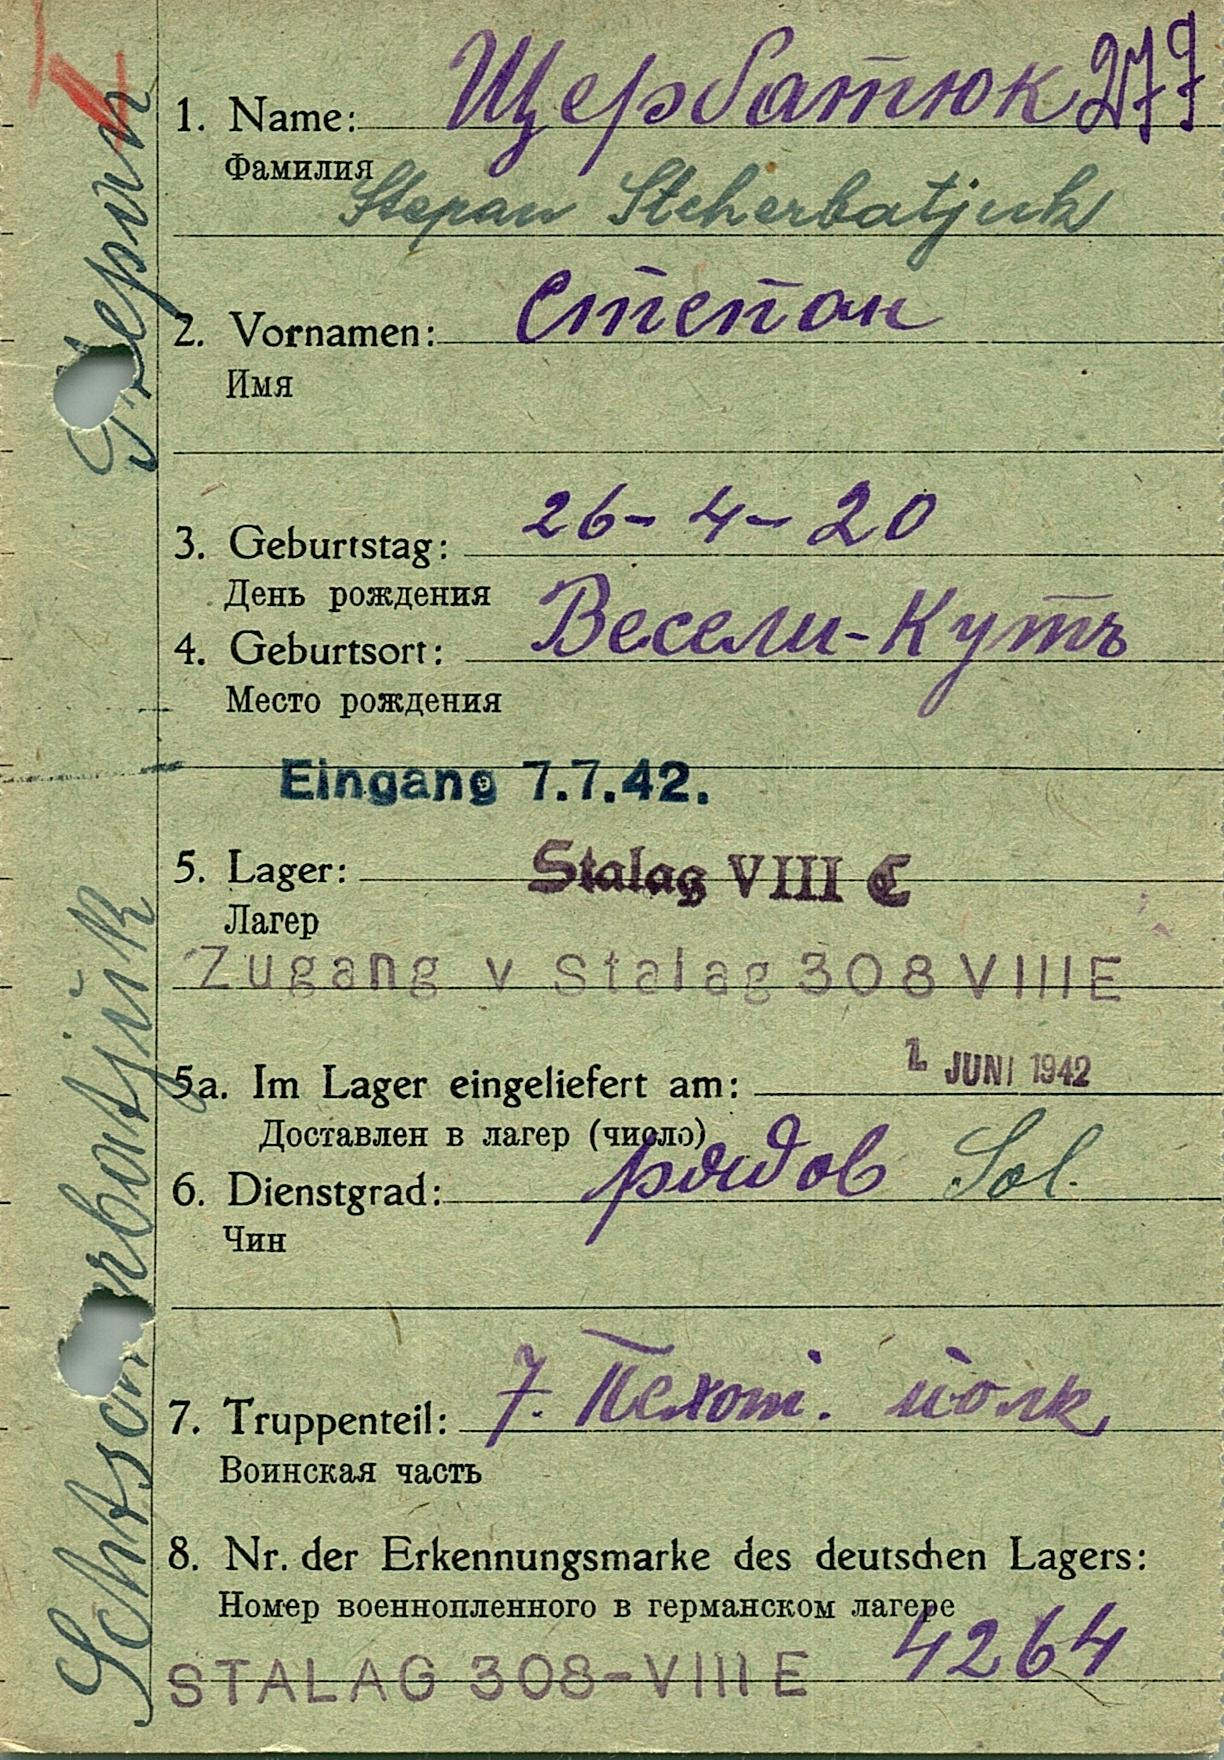 1. Name: Щербатюк 277
Фамилия
Stepan Stcherbatjuk
2. Vornamen: Степан
Имя
3. Geburtstag: 26-4-20
День рождения
4. Geburtsort: Весели-Кутъ
Место рождения
Eingang 7.7.42.
5. Lager: Stalag VIII C
Лагер
Zugang v Stalag 308 VIII E
5a. Im Lager eingeliefert am: 1 JUNI 1942
Доставлен в лагер (число)
6. Dienstgrad: рядов Sol.
Чин
7. Truppenteil: 7. Пехот. полк
Воинская часть
8. Nr. der Erkennungsmarke des deutschen Lagers:
Номер военнопленного в германском лагере
STALAG 308-VIII E 4264